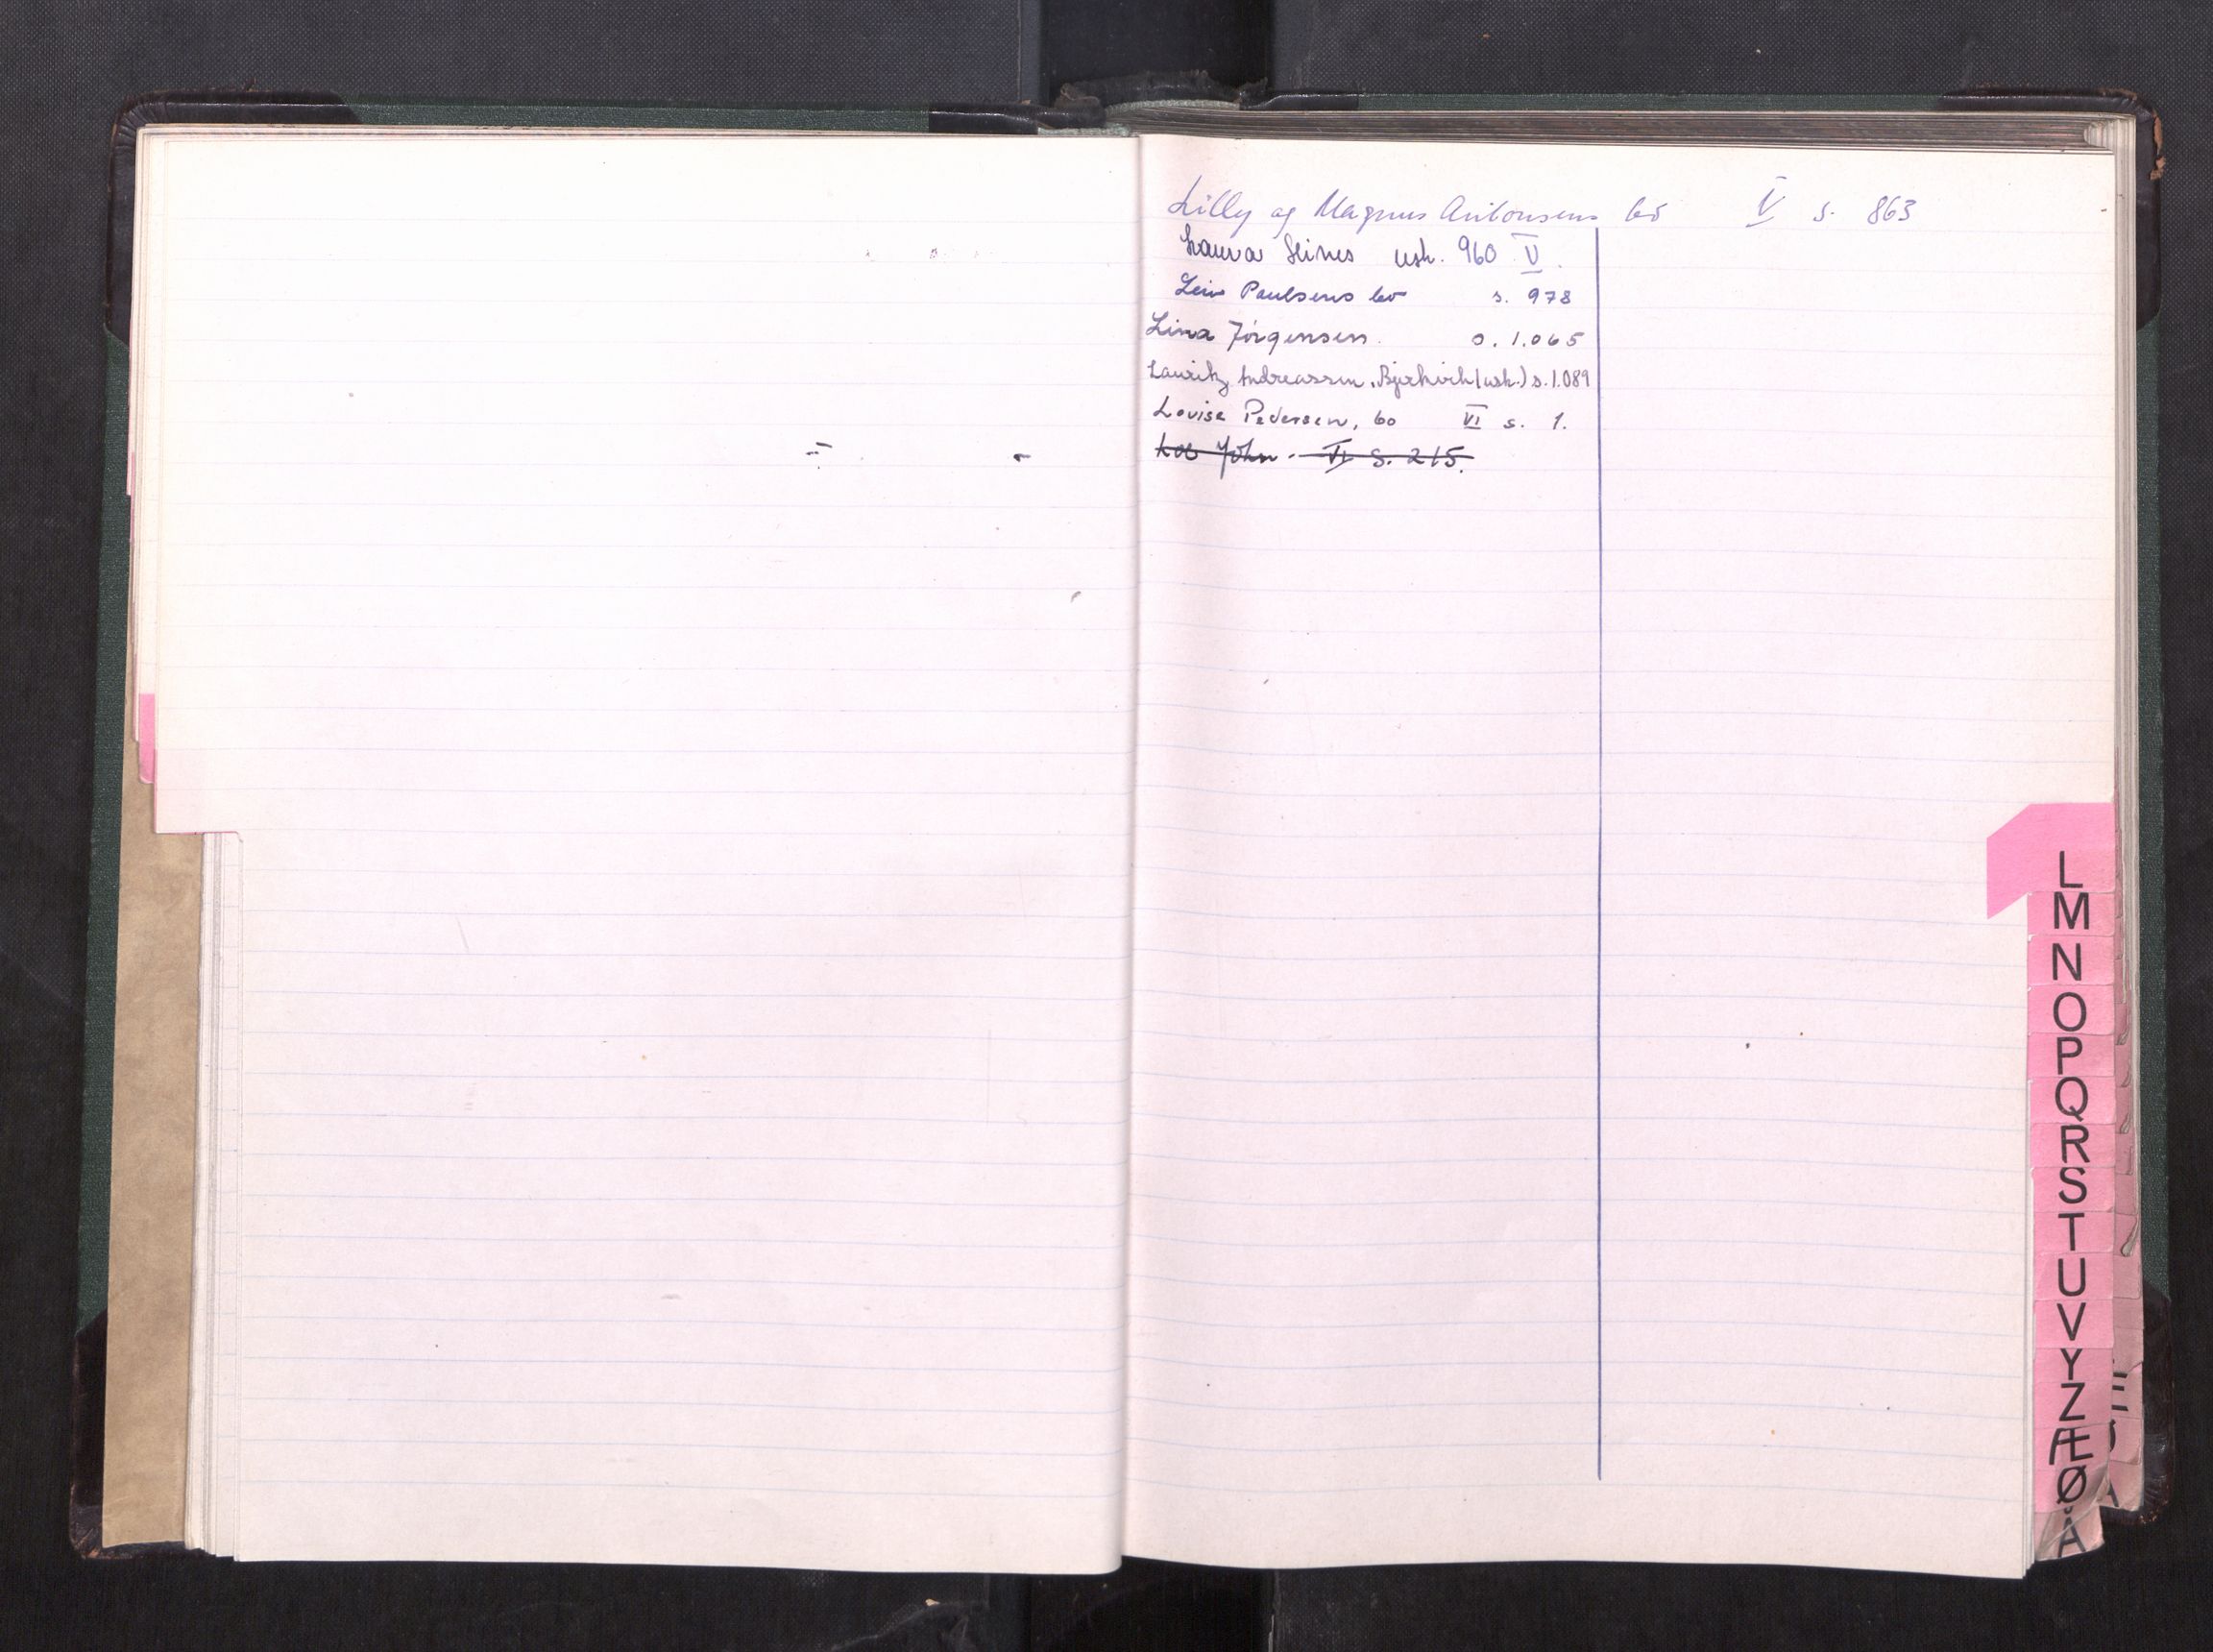 Lilly og Magnus Antonsens bo V s. 863
Laura Heines usk. 960 V.
Leiv Paulsens bo s. 978
Lina Jörgensen. s. 1.065
Lauritz Andreassen, (usk.) s. 1.089
Lovise Pedersen, bo VI s. 1.
John - VI S. 215.
L
M
N
O
P
Q
R
S
T
U
V
Y
Z
Æ
Ø
Å